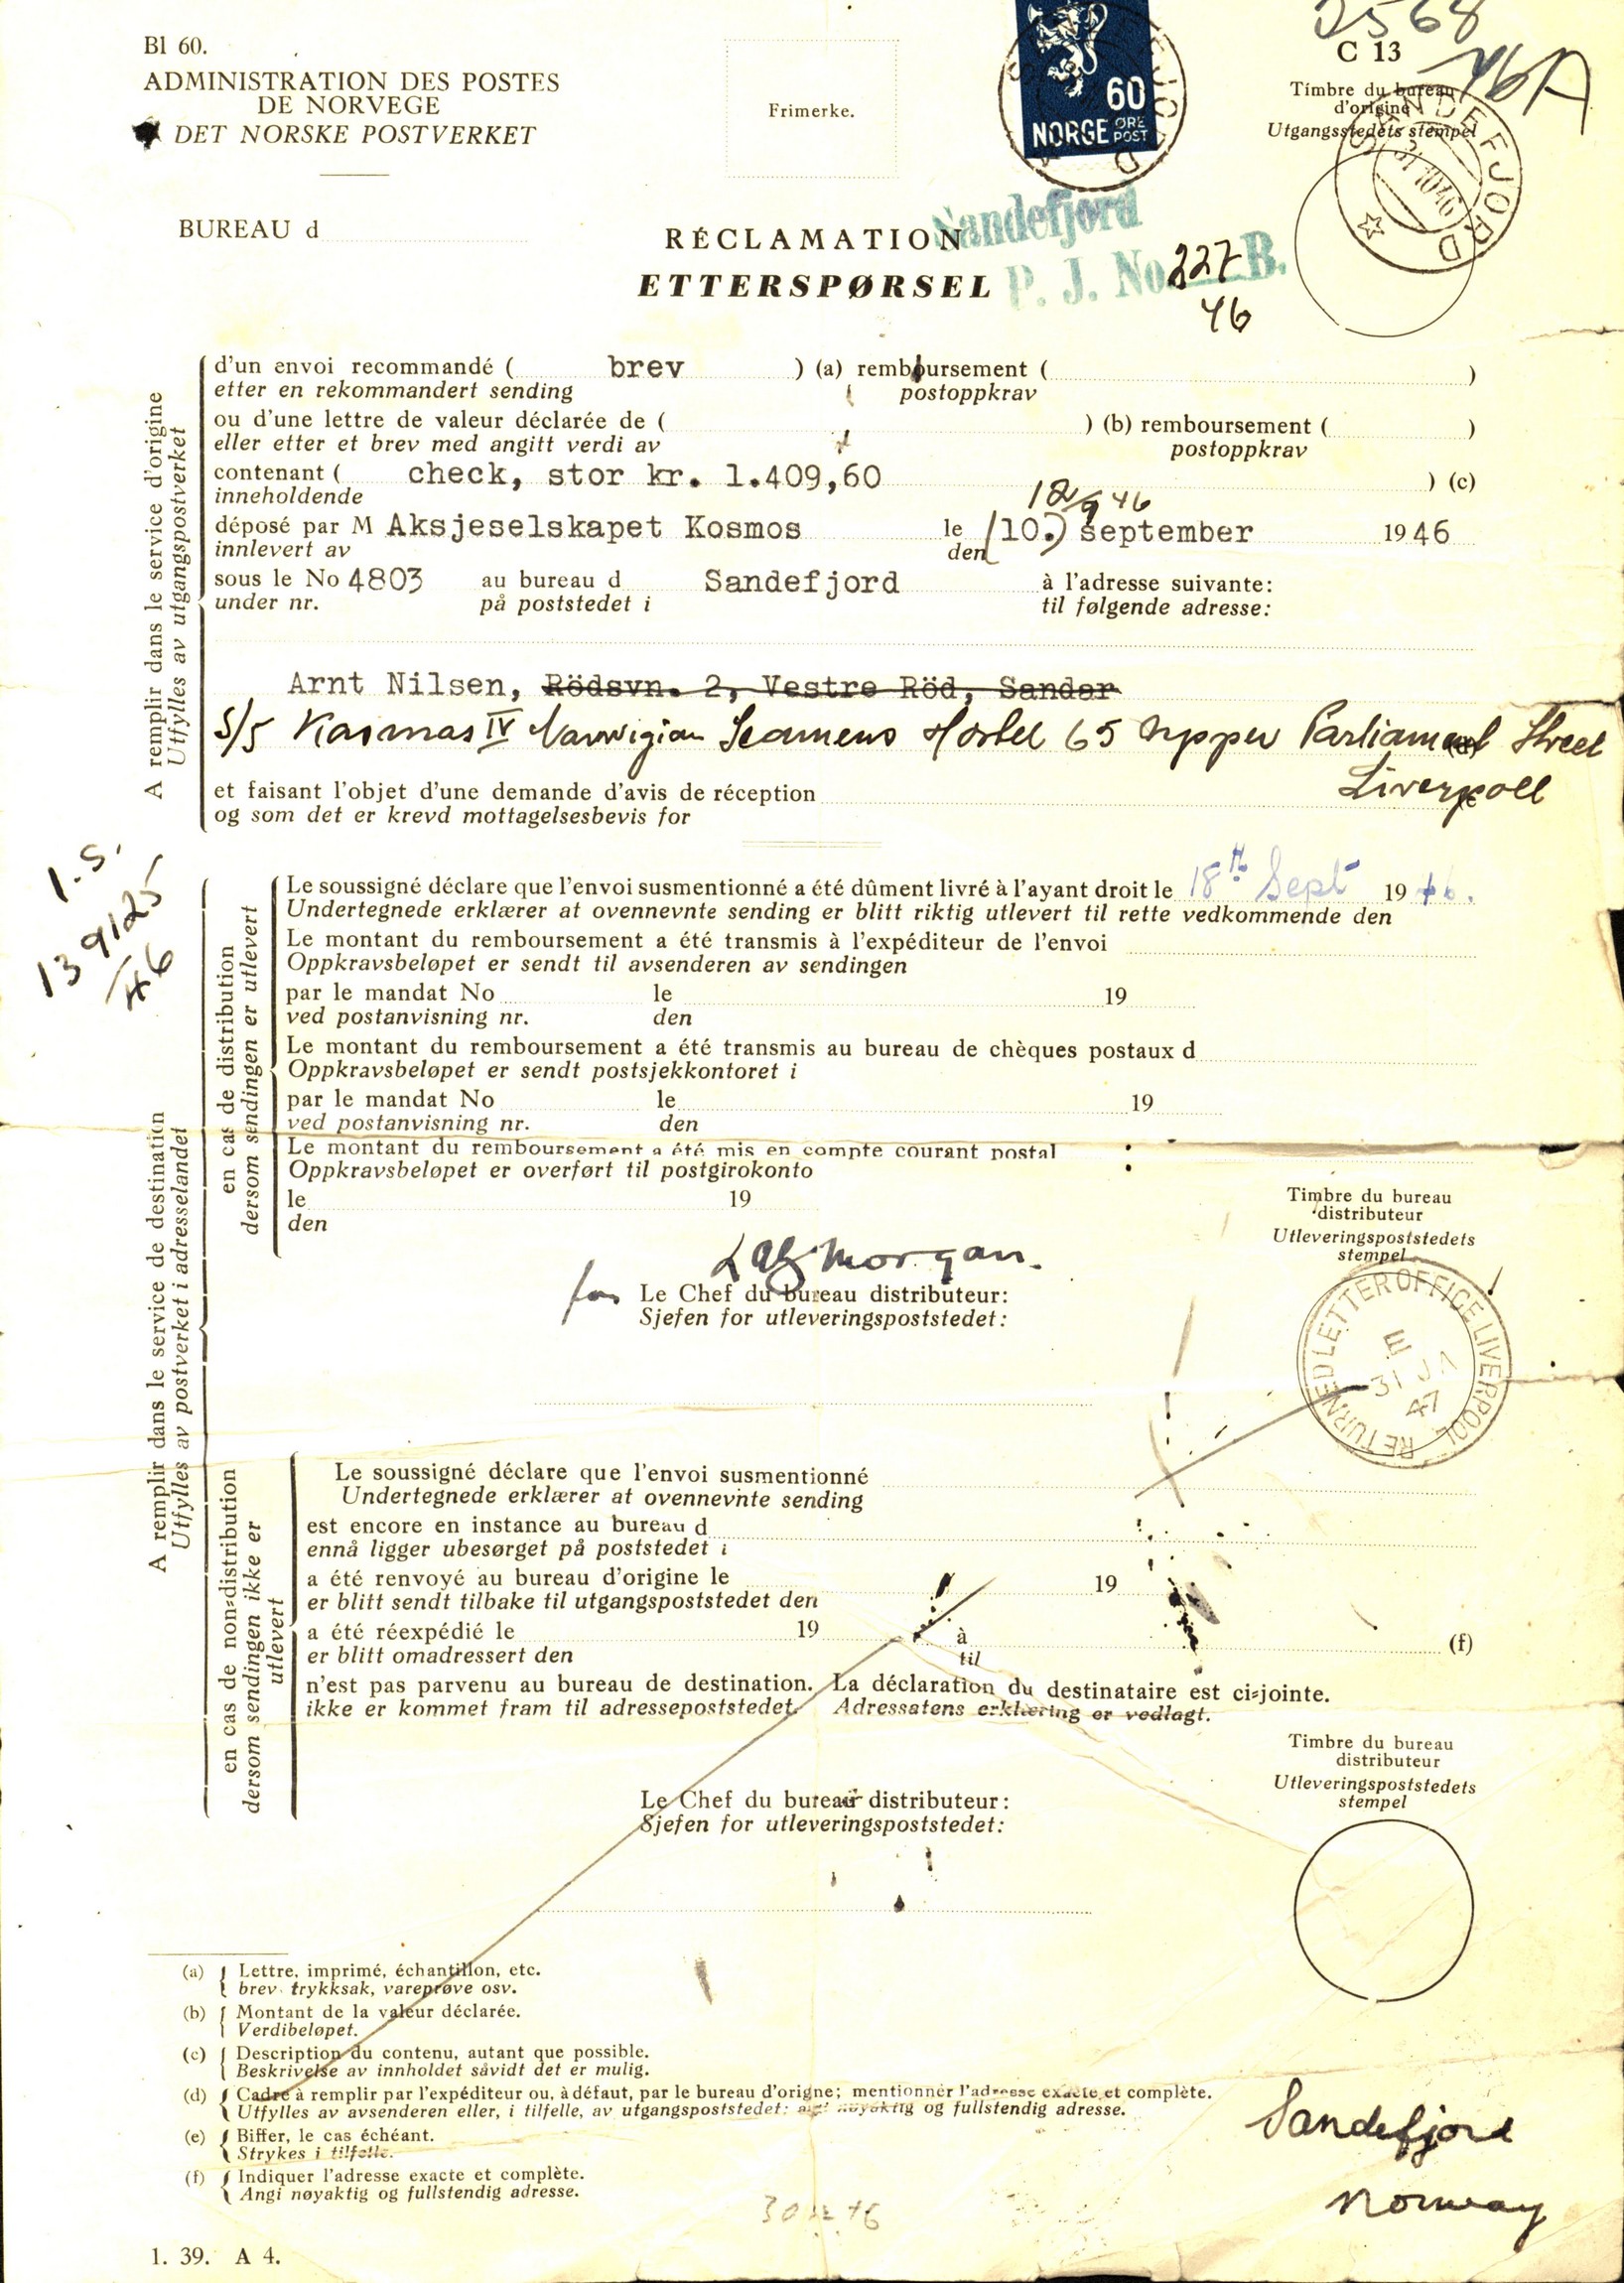 Bl 60.
ADMINISTRATION DES POSTES
DE NORVEGE
DET NORSKE POSTVERKET
Frimerke.
60
NORGE ØRE POST
2568
46A
C 13
Timbre du bureau
d'origine
Utgangsstedets stempel
SANDEFJORD
31 10 46
BUREAU d
RÉCLAMATION
ETTERSPØRSEL
Sandefjord
P. J. No. 227 B.
46
A remplir dans le service d'origine
Utfylles av utgangspostverket
d'un envoi recommandé ( brev ) (a) remboursement ( )
etter en rekommandert sending postoppkrav
ou d'une lettre de valeur déclarée de ( ) (b) remboursement ( )
eller etter et brev med angitt verdi av postoppkrav
contenant ( check, stor kr. 1.409,60 ) (c)
inneholdende
12/9 46
déposé par M Aksjeselskapet Kosmos le (10.) september 1946
innlevert av den
sous le No 4803 au bureau d Sandefjord à l'adresse suivante:
under nr. på poststedet i til følgende adresse:
Arnt Nilsen, Rödsvn. 2, Vestre Röd, Sandar
S/S Kosmos IV Norwigian Seamens Hostel 65 Upper Parliament Street
Liverpoll
et faisant l'objet d'une demande d'avis de réception
og som det er krevd mottagelsesbevis for
1.S.
139125
/46
A remplir dans le service de destination
Utfylles av postverket i adresselandet
en cas de distribution
dersom sendingen er utlevert
Le soussigné déclare que l'envoi susmentionné a été dûment livré à l'ayant droit le 18th Sept 1946.
Undertegnede erklærer at ovennevnte sending er blitt riktig utlevert til rette vedkommende den
Le montant du remboursement a été transmis à l'expéditeur de l'envoi
Oppkravsbeløpet er sendt til avsenderen av sendingen
par le mandat No le 19
ved postanvisning nr. den
Le montant du remboursement a été transmis au bureau de chèques postaux d
Oppkravsbeløpet er sendt postsjekkontoret i
par le mandat No le 19
ved postanvisning nr. den
Le montant du remboursement a été mis en compte courant postal
Oppkravsbeløpet er overført til postgirokonto
le 19
den
Timbre du bureau
distributeur
Utleveringspoststedets
stempel
Morgan.
for Le Chef du bureau distributeur:
Sjefen for utleveringspoststedet:
RETURNED LETTER OFFICE LIVERPOOL
E
31 JA
47
en cas de non-distribution
dersom sendingen ikke er
utlevert
Le soussigné déclare que l'envoi susmentionné
Undertegnede erklærer at ovennevnte sending
est encore en instance au bureau d
ennå ligger ubesørget på poststedet i
a été renvoyé au bureau d'origine le 19
er blitt sendt tilbake til utgangspoststedet den
a été réexpédié le 19 à (f)
er blitt omadressert den til
n'est pas parvenu au bureau de destination. La déclaration du destinataire est ci-jointe.
ikke er kommet fram til adressepoststedet. Adressatens erklæring er vedlagt.
Timbre du bureau
distributeur
Utleveringspoststedets
stempel
Le Chef du bureau distributeur:
Sjefen for utleveringspoststedet:
(a) Lettre, imprimé, échantillon, etc.
brev. trykksak, vareprøve osv.
(b) Montant de la valeur déclarée.
Verdibeløpet.
(c) Description du contenu, autant que possible.
Beskrivelse av innholdet såvidt det er mulig.
(d) Cadre à remplir par l'expéditeur ou, à défaut, par le bureau d'origne; mentionner l'adresse exacte et complète.
Utfylles av avsenderen eller, i tilfelle, av utgangspoststedet: angi nøyaktig og fullstendig adresse.
(e) Biffer, le cas échéant.
Strykes i tilfelle.
(f) Indiquer l'adresse exacte et complète.
Angi nøyaktig og fullstendig adresse.
Sandefjord
Norway
1. 39. A 4.